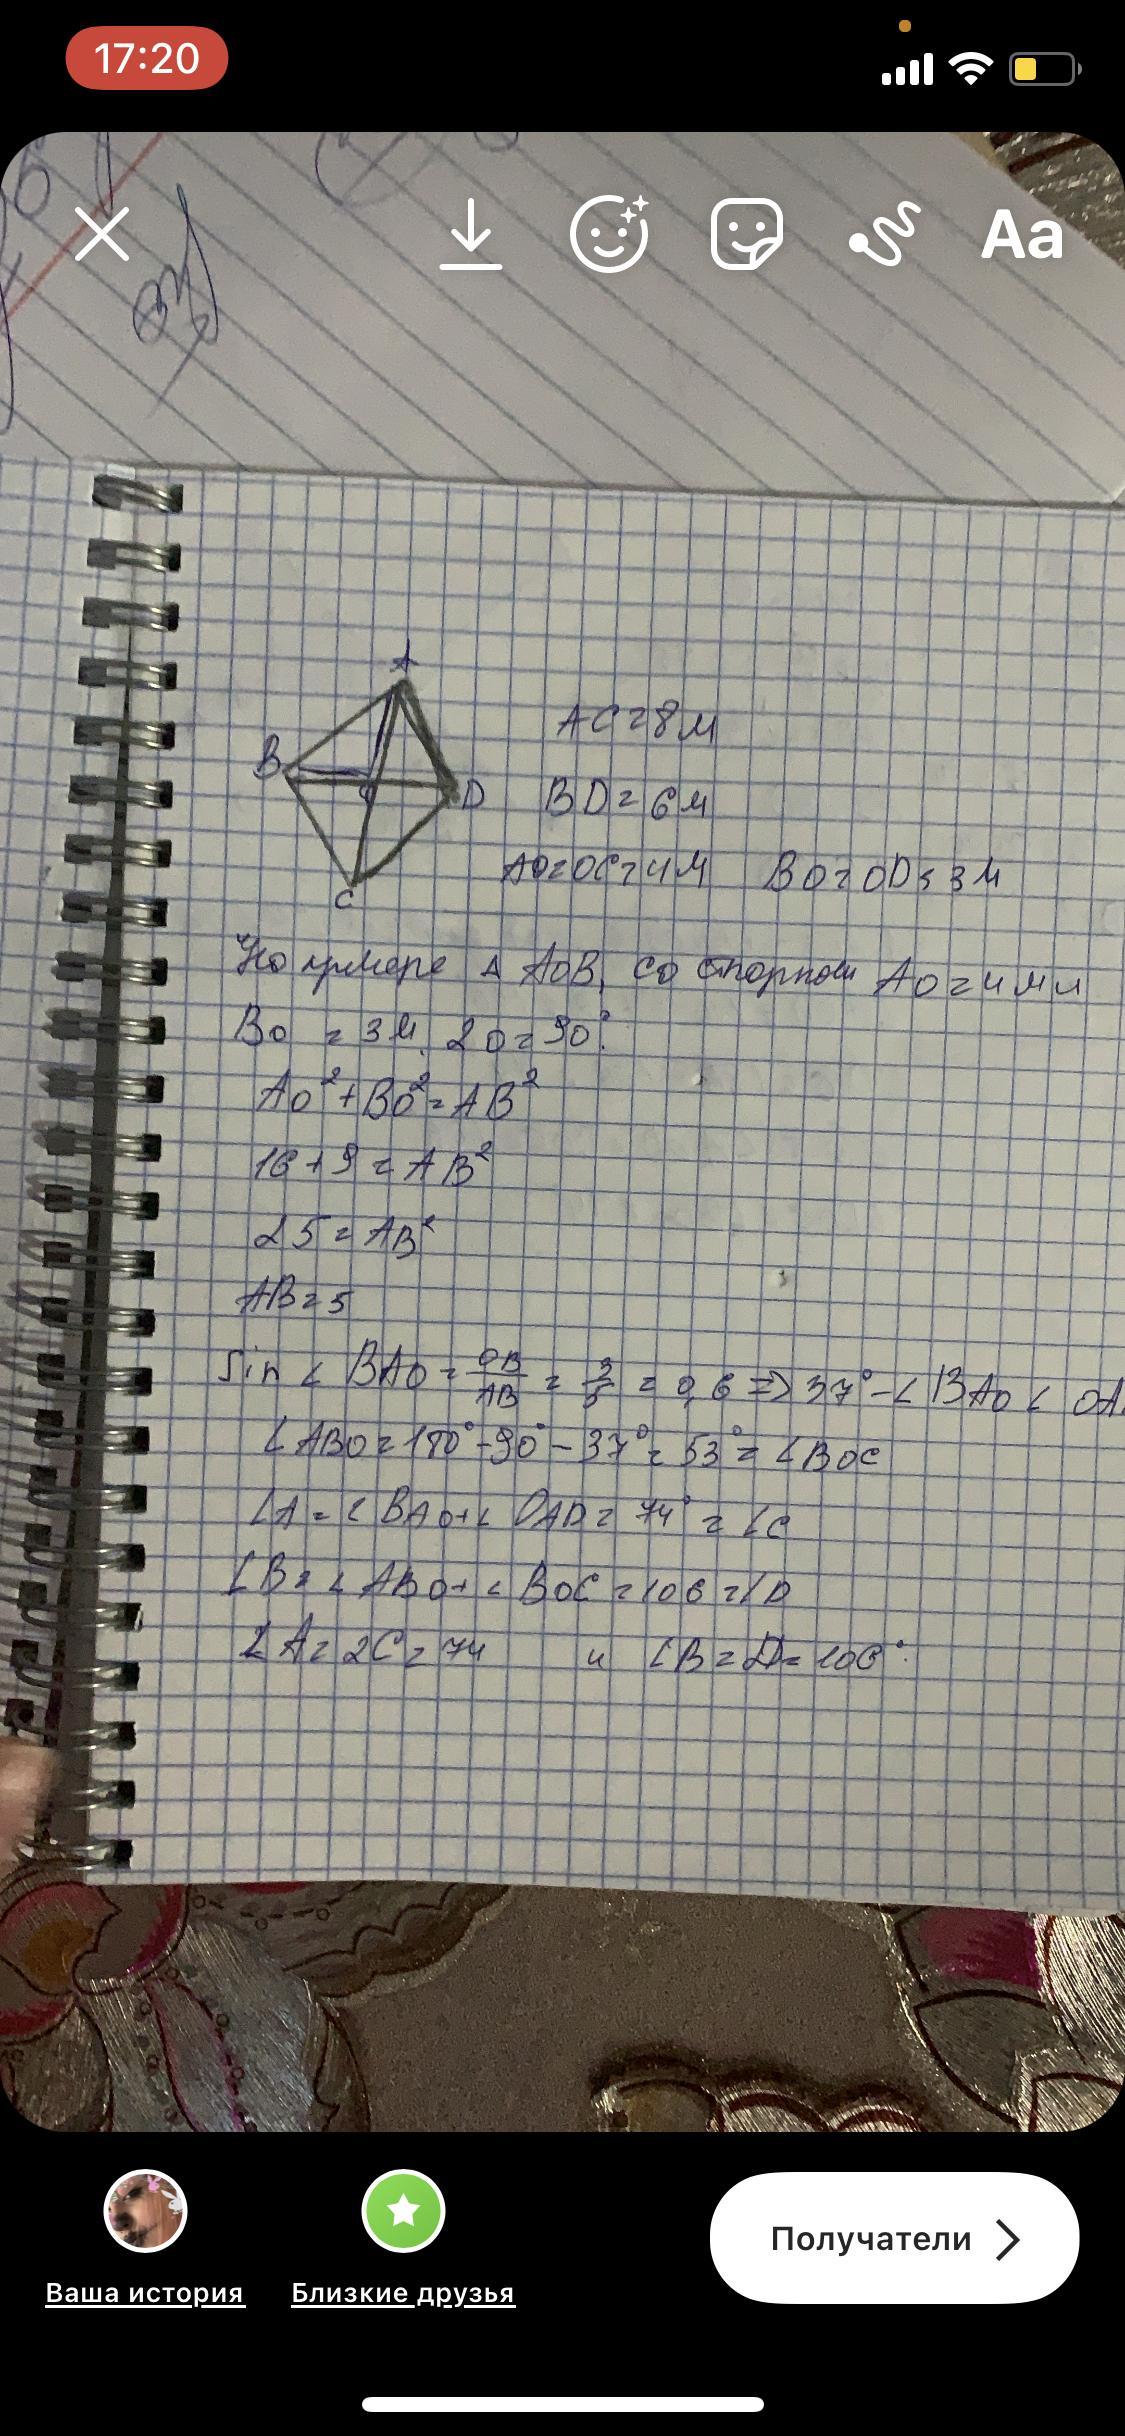 17:20
Aa
A
B
O
D
C
AC = 8 м
BD = 6 м
AO = OC = 4 м BO = OD = 3 м
На примере Δ AOB, со сторонами AO = 4 м и
BO = 3 м. ∠O = 90°.
AO² + BO² = AB²
16 + 9 = AB²
25 = AB²
AB = 5
Sin ∠ BAO = OB/AB = 3/5 = 0,6 => 37° - ∠ BAO ∠ OA
∠ABO = 180° - 90° - 37° = 53° = ∠BOC
∠A = ∠ BAO + ∠ OAD = 74° = ∠C
∠B = ∠ ABO + ∠ BOC = 106 = ∠D
∠A = ∠C = 74 и ∠B = D = 106°.
Ваша история
Близкие друзья
Получатели